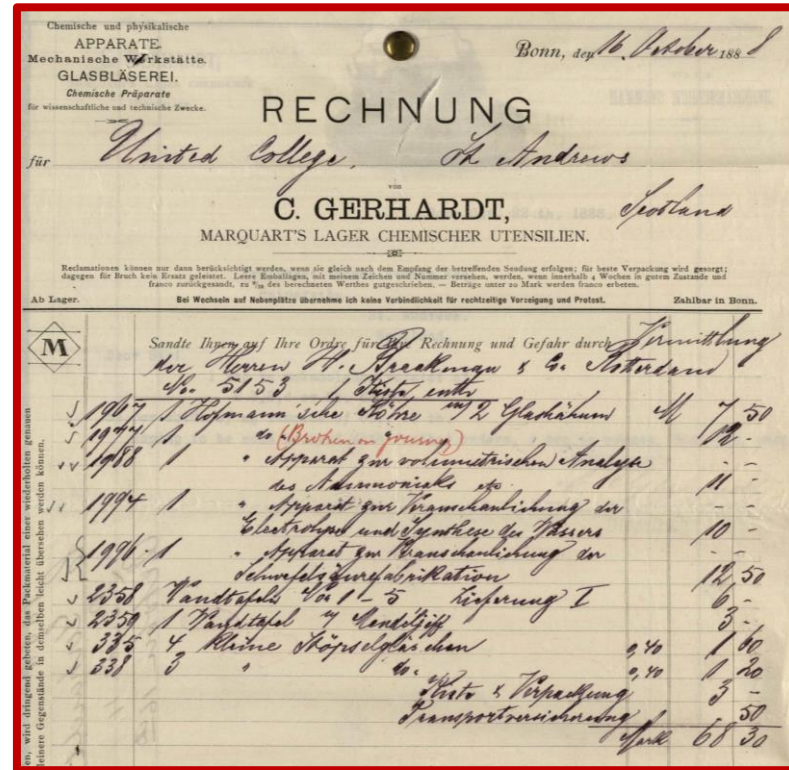 Chemische und physikalische
APPARATE.
Mechanische Werkstätte.
GLASBLÄSEREI.
Chemische Präparate
für wissenschaftliche und technische Zwecke.
Bonn, den 16. October 1888
RECHNUNG
für United College, St Andrews
VON
C. GERHARDT, Scotland
MARQUART'S LAGER CHEMISCHER UTENSILIEN.
Reclamationen können nur dann berücksichtigt werden, wenn sie gleich nach dem Empfang der betreffenden Sendung erfolgen; für beste Verpackung wird gesorgt;
dagegen für Bruch kein Ersatz geleistet. Leere Emballagen, mit meinem Zeichen und Nummer versehen, werden, wenn innerhalb 4 Wochen in gutem Zustande und
franco zurückgesandt, zu des berechneten Werthes gutgeschrieben. — Beträge unter 20 Mark werden franco erbeten.
Ab Lager. Bei Wechseln auf Nebenplätze übernehme ich keine Verbindlichkeit für rechtzeitige Vorzeigung und Protest. Zahlbar in Bonn.
M
Sandte Ihnen auf Ihre Ordre für Ihre Rechnung und Gefahr durch Vermittlung
der Herren H. Braakman & Co Rotterdam
No. 5153 1 Kiste enth
1967 1 Hofmann'sche Röhre 2 Glashähnen M 7 50
1977 1 " do (Broken on journey) 12 -
1988 1 " Apparat zur volumetrischen Analyse - -
des Ammoniaks etc 11 -
1994 1 " Apparat zur Veranschaulichung der - -
Electrolyse und Synthese des Wassers 10 -
1996 1 " Apparat zur Veranschaulichung der - -
Schwefelsäurefabrikation 12 50
2358 Wandtafeln No 1-5 Lieferung I 6 -
2359 1 Wandtafel Mendelejeff 3 -
335 4 kleine Stöpselgläschen 0,40 1 60
338 3 " do. 0,40 1 20
Kiste & Verpackung 3 -
Transportversicherung 50
Mark 68 30
en, wird dringend gebeten, das Packmaterial einer wiederholten genauen
leinere Gegenstände in demselben leicht übersehen werden können.